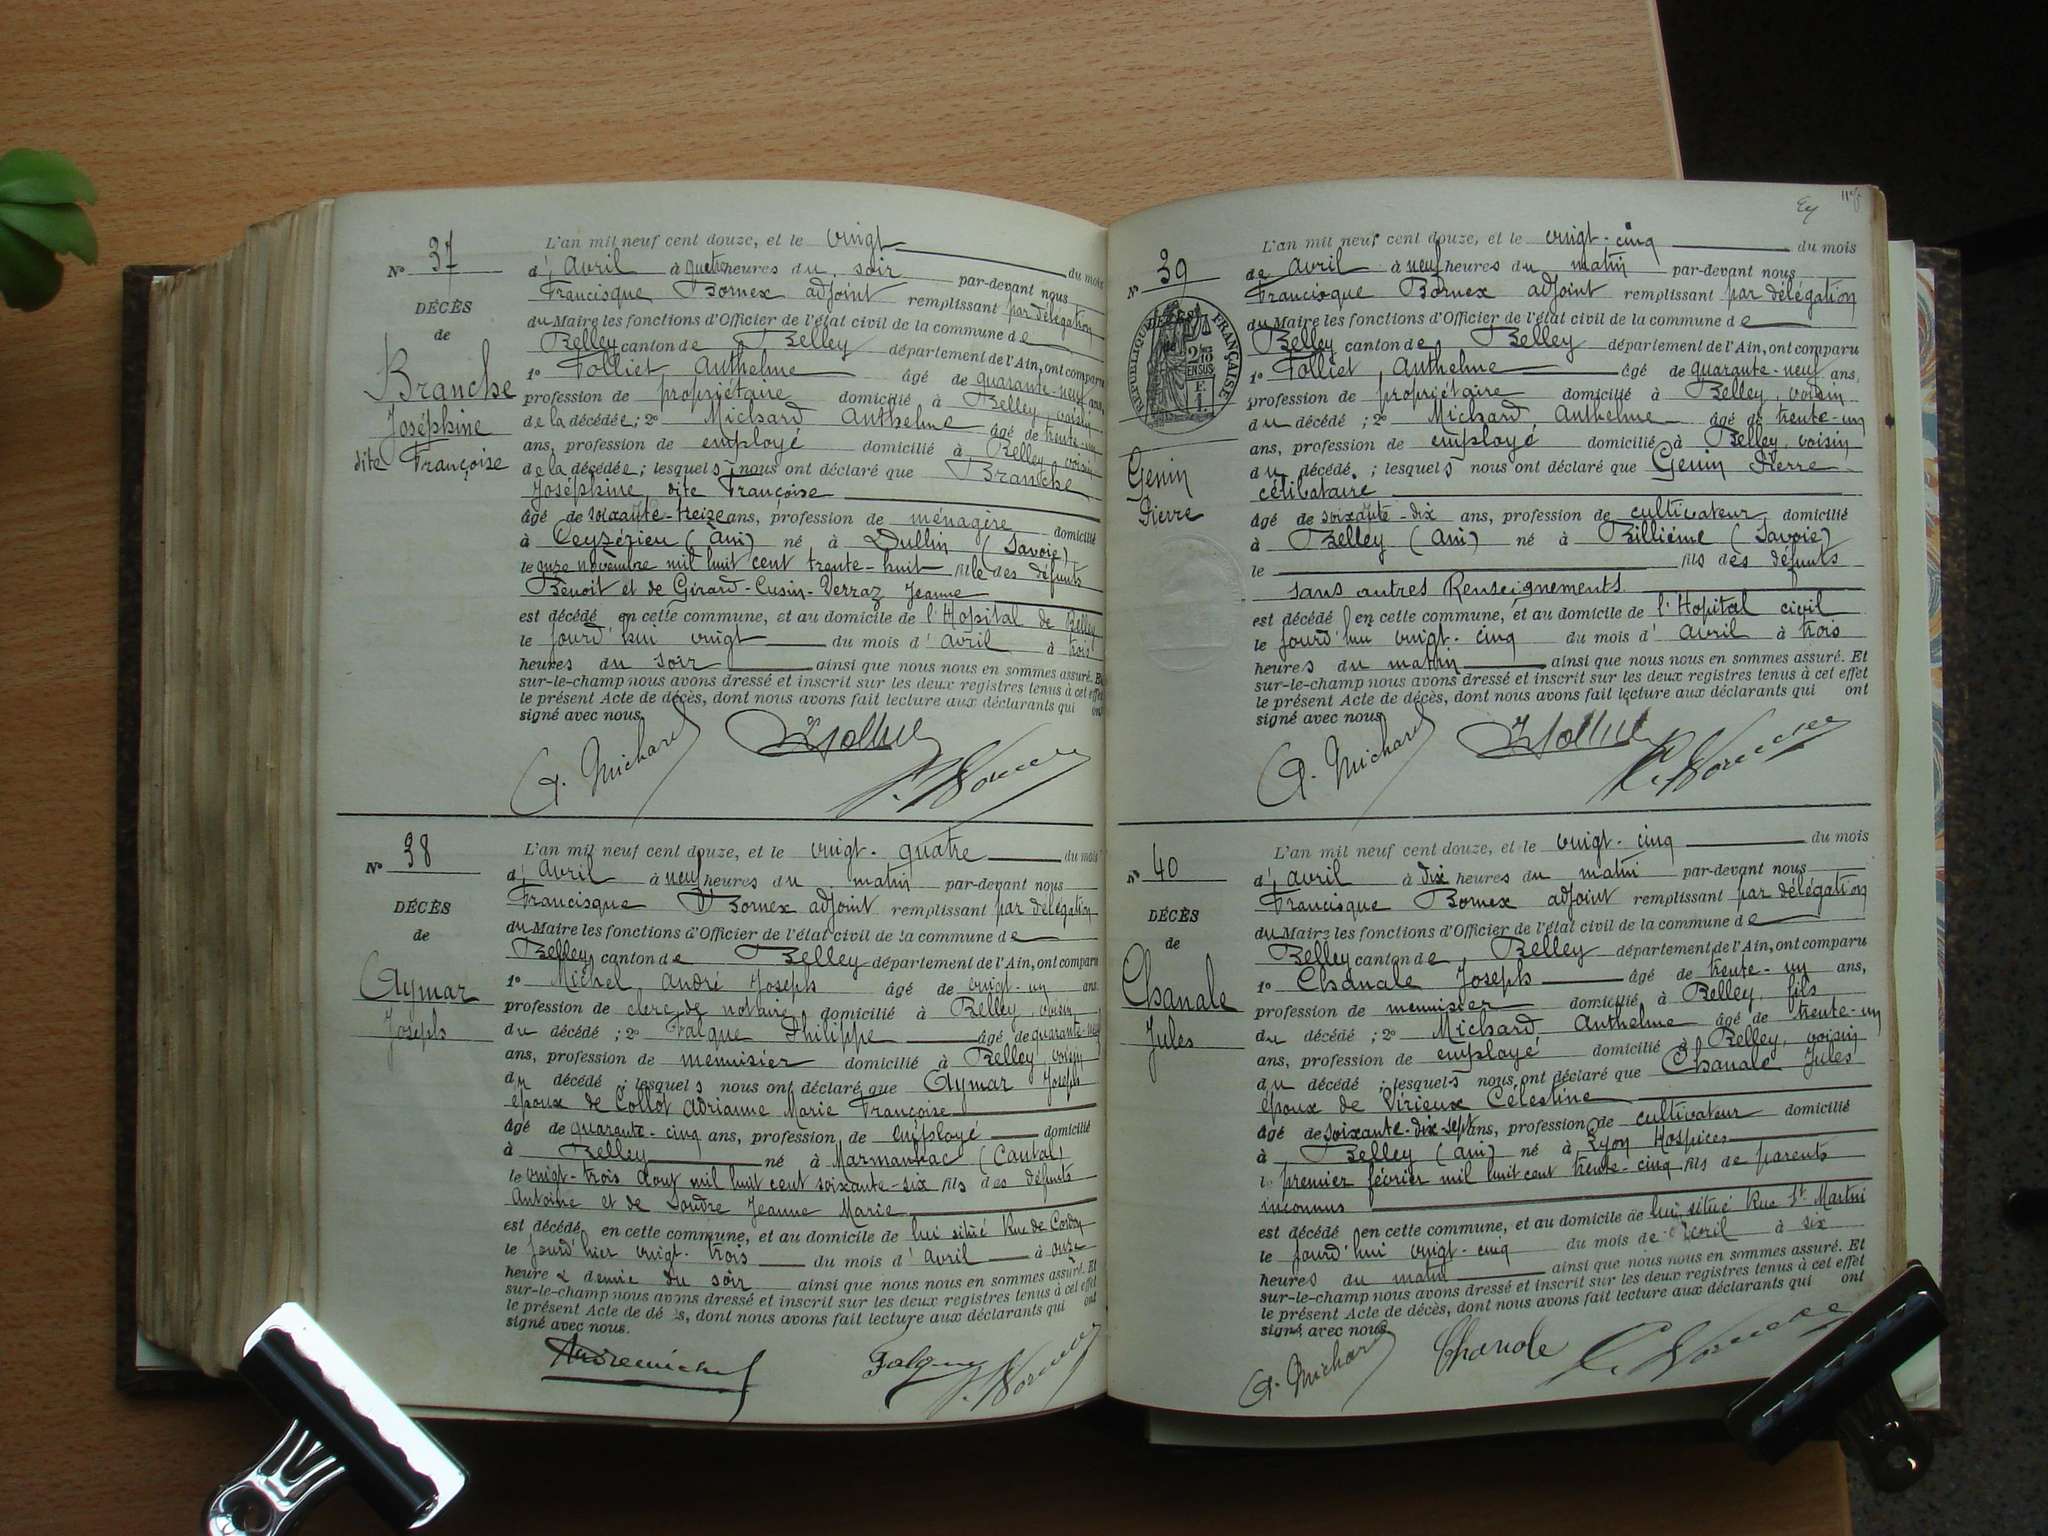 N° 37
DÉCÈS
de
Branche
Joséphine
dite Françoise
L'an mil neuf cent douze, et le vingt du mois
d'avril à quatre heures du soir par-devant nous
Francisque Bornex adjoint remplissant par délégation
du Maire les fonctions d'Officier de l'état civil de la commune de
Belley canton de Belley département de l'Ain, ont comparu
1° Folliet Anthelme âgé de quarante-neuf ans,
profession de propriétaire domicilié à Belley, voisin
de la décédée ; 2° Michard Anthelme âgé de trente-un
ans, profession de employé domicilié à Belley, voisin
de la décédée ; lesquels nous ont déclaré que Branche
Joséphine, dite Françoise
âgé de soixante-treize ans, profession de ménagère domicilié
à Ceyzérieu (Ain) né à Dullin (Savoie)
le onze novembre mil huit cent trente-huit fille des défunts
Benoit et de Girard-Cusin-Verraz Jeanne
est décédé en cette commune, et au domicile de l'Hopital de Belley
le jourd'hui vingt du mois d'avril à trois
heures du soir ainsi que nous nous en sommes assuré. Et
sur-le-champ nous avons dressé et inscrit sur les deux registres tenus à cet effet
le présent Acte de décès, dont nous avons fait lecture aux déclarants qui ont
signé avec nous.
A. Michard Folliet F. Bornex
N° 38
DÉCÈS
de
Aymar
Joseph
L'an mil neuf cent douze, et le vingt-quatre du mois
d'avril à neuf heures du matin par-devant nous
Francisque Bornex adjoint remplissant par délégation
du Maire les fonctions d'Officier de l'état civil de la commune de
Belley canton de Belley département de l'Ain, ont comparu
1° Michel André Joseph âgé de vingt-un ans
profession de clerc de notaire domicilié à Belley, voisin
du décédé ; 2° Falque Philippe âgé de quarante-neuf
ans, profession de menuisier domicilié à Belley voisin
du décédé ; lesquels nous ont déclaré que Aymar Joseph
époux de Collot Adrianne Marie Françoise
âgé de quarante-cinq ans, profession de employé domicilié
à Belley né à Marmanhac (Cantal)
le vingt-trois Aout mil huit cent soixante-six fils des défunts
Antoine et de Jeanne Marie
est décédé, en cette commune, et au domicile de lui situé Rue de Cordon
le jourd'hier vingt-trois du mois d'avril à onze
heure & demie du soir ainsi que nous nous en sommes assuré. Et
sur-le-champ nous avons dressé et inscrit sur les deux registres tenus à cet effet
le présent Acte de décès, dont nous avons fait lecture aux déclarants qui ont
signé avec nous.
Andremichel Falque F. Bornex
118
N° 39
DÉCÈS
de
RÉPUBLIQUE FRANÇAISE
Genin
Pierre
L'an mil neuf cent douze, et le vingt-cinq du mois
de avril à neuf heures du matin par-devant nous
Francisque Bornex adjoint remplissant par délégation
du Maire les fonctions d'Officier de l'état civil de la commune de
Belley canton de Belley département de l'Ain, ont comparu
1° Folliet Anthelme âgé de quarante-neuf ans,
profession de propriétaire domicilié à Belley, voisin
du décédé ; 2° Michard Anthelme âgé de trente-un
ans, profession de employé domicilié à Belley, voisin
du décédé ; lesquels nous ont déclaré que Genin Pierre
célibataire
âgé de soixante-dix ans, profession de cultivateur domicilié
à Belley (Ain) né à Billième (Savoie)
le fils des défunts
sans autres Renseignements
est décédé en cette commune, et au domicile de l'Hopital civil
le jourd'hui vingt-cinq du mois d'avril à trois
heures du matin ainsi que nous nous en sommes assuré. Et
sur-le-champ nous avons dressé et inscrit sur les deux registres tenus à cet effet
le présent Acte de décès, dont nous avons fait lecture aux déclarants qui ont
signé avec nous
A. Michard Folliet F. Bornex
N° 40
DÉCÈS
de
Chanale
Jules
L'an mil neuf cent douze, et le vingt-cinq du mois
d'avril à dix heures du matin par-devant nous
Francisque Bornex adjoint remplissant par délégation
du Maire les fonctions d'Officier de l'état civil de la commune de
Belley canton de Belley département de l'Ain, ont comparu
1° Chanale Joseph âgé de trente-un ans,
profession de menuisier domicilié à Belley, fils
du décédé ; 2° Michard Anthelme âgé de trente-un
ans, profession de employé domicilié à Belley, voisin
du décédé ; lesquels nous ont déclaré que Chanale Jules
époux de Virieux Célestine
âgé de soixante-dix-sept ans, profession de cultivateur domicilié
à Belley (Ain) né à Lyon Hospices
le premier février mil huit cent trente-cinq fils de parents
inconnus
est décédé en cette commune, et au domicile de lui situé Rue St Martin
le jourd'hui vingt-cinq du mois de avril à six
heures du matin ainsi que nous nous en sommes assuré. Et
sur-le-champ nous avons dressé et inscrit sur les deux registres tenus à cet effet
le présent Acte de décès, dont nous avons fait lecture aux déclarants qui ont
signé avec nous
A. Michard Chanale F. Bornex